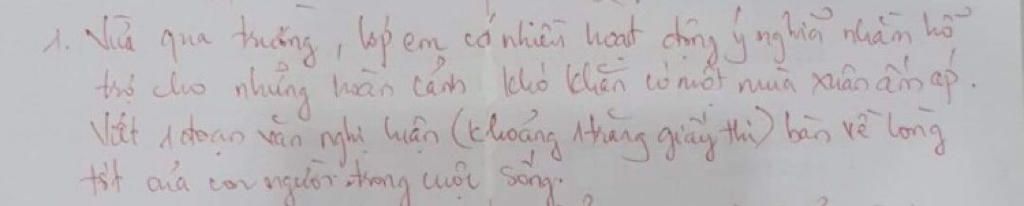 1. Vừa qua trường, lớp em có nhiều hoạt động ý nghĩa nhằm hỗ
trợ cho những hoàn cảnh khó khăn có một mùa xuân ấm áp.
Viết 1 đoạn văn nghị luận (khoảng 1 trang giấy thi) bàn về lòng
tốt của con người trong cuộc sống.